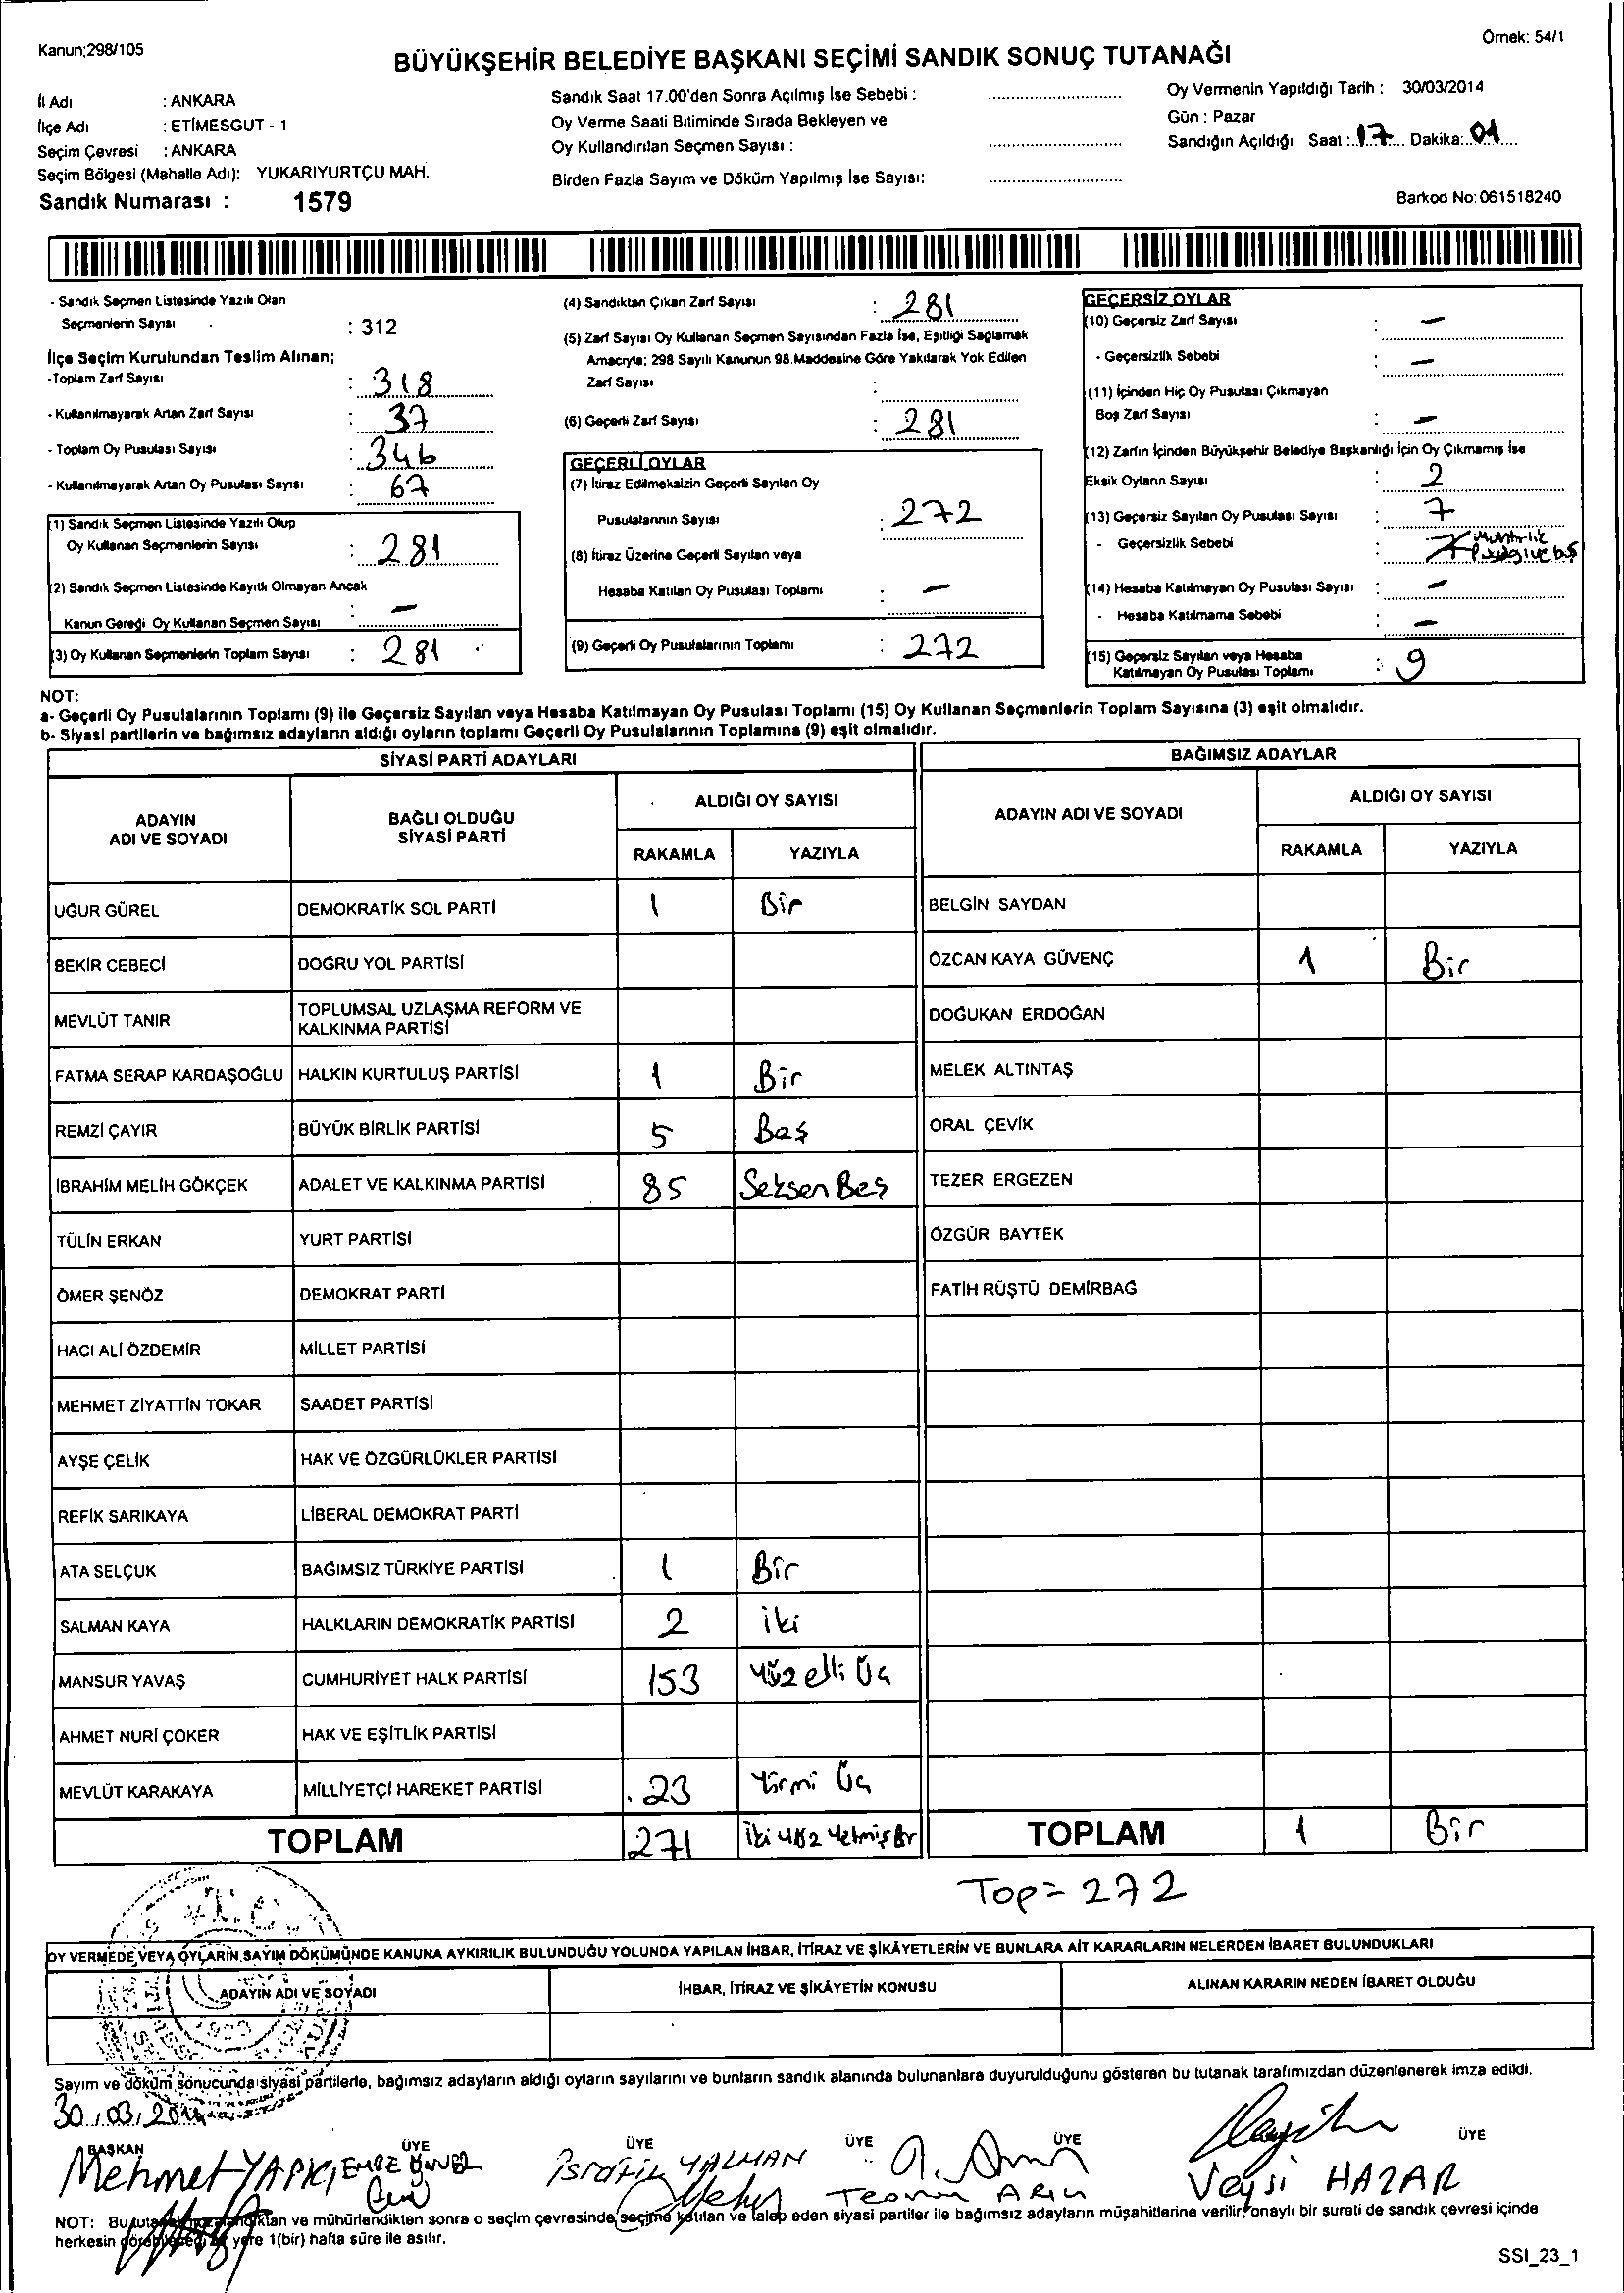 Kanun;298/105
Örnek: 54/1
BÜYÜKŞEHİR BELEDİYE BAŞKANI SEÇİMİ SANDIK SONUÇ TUTANAĞI
İl Adı : ANKARA
İlçe Adı : ETİMESGUT - 1
Seçim Çevresi : ANKARA
Seçim Bölgesi (Mahalle Adı): YUKARIYURTÇU MAH.
Sandık Numarası : 1579
Sandık Saat 17.00'den Sonra Açılmış İse Sebebi :
Oy Verme Saati Bitiminde Sırada Bekleyen ve
Oy Kullandırılan Seçmen Sayısı :
Birden Fazla Sayım ve Döküm Yapılmış İse Sayısı:
Oy Vermenin Yapıldığı Tarih : 30/03/2014
Gün : Pazar
Sandığın Açıldığı Saat : 17 Dakika: 01
Barkod No: 061518240
- Sandık Seçmen Listesinde Yazılı Olan
Seçmenlerin Sayısı : 312
İlçe Seçim Kurulundan Teslim Alınan;
-Toplam Zarf Sayısı : 318
- Kullanılmayarak Artan Zarf Sayısı : 37
- Toplam Oy Pusulası Sayısı : 346
- Kullanılmayarak Artan Oy Pusulası Sayısı : 67
(1) Sandık Seçmen Listesinde Yazılı Olup
Oy Kullanan Seçmenlerin Sayısı : 281
(2) Sandık Seçmen Listesinde Kayıtlı Olmayan Ancak
Kanun Gereği Oy Kullanan Seçmen Sayısı : -
(3) Oy Kullanan Seçmenlerin Toplam Sayısı : 281
(4) Sandıktan Çıkan Zarf Sayısı : 281
(5) Zarf Sayısı Oy Kullanan Seçmen Sayısından Fazla İse, Eşitliği Sağlamak
Amacıyla; 298 Sayılı Kanunun 98.Maddesine Göre Yakılarak Yok Edilen
Zarf Sayısı :
(6) Geçerli Zarf Sayısı : 281
GEÇERLİ OYLAR
(7) İtiraz Edilmeksizin Geçerli Sayılan Oy
Pusulalarının Sayısı : 272
(8) İtiraz Üzerine Geçerli Sayılan veya
Hesaba Katılan Oy Pusulası Toplamı : -
(9) Geçerli Oy Pusulalarının Toplamı : 272
GEÇERSİZ OYLAR
(10) Geçersiz Zarf Sayısı : -
- Geçersizlik Sebebi : -
(11) İçinden Hiç Oy Pusulası Çıkmayan
Boş Zarf Sayısı : -
(12) Zarfın İçinden Büyükşehir Belediye Başkanlığı İçin Oy Çıkmamış İse
Eksik Oyların Sayısı : 2
(13) Geçersiz Sayılan Oy Pusulası Sayısı : 7
- Geçersizlik Sebebi : 7
(14) Hesaba Katılmayan Oy Pusulası Sayısı : -
- Hesaba Katılmama Sebebi : -
(15) Geçersiz Sayılan veya Hesaba
Katılmayan Oy Pusulası Toplamı : 9
NOT:
a- Geçerli Oy Pusulalarının Toplamı (9) ile Geçersiz Sayılan veya Hesaba Katılmayan Oy Pusulası Toplamı (15) Oy Kullanan Seçmenlerin Toplam Sayısına (3) eşit olmalıdır.
b- Siyasi partilerin ve bağımsız adayların aldığı oyların toplamı Geçerli Oy Pusulalarının Toplamına (9) eşit olmalıdır.
SİYASİ PARTİ ADAYLARI
ADAYIN ADI VE SOYADI
BAĞLI OLDUĞU SİYASİ PARTİ
ALDIĞI OY SAYISI
RAKAMLA YAZIYLA
UĞUR GÜREL DEMOKRATİK SOL PARTİ 1 Bir
BEKİR CEBECİ DOĞRU YOL PARTİSİ
MEVLÜT TANIR TOPLUMSAL UZLAŞMA REFORM VE KALKINMA PARTİSİ
FATMA SERAP KARDAŞOĞLU HALKIN KURTULUŞ PARTİSİ 1 Bir
REMZİ ÇAYIR BÜYÜK BİRLİK PARTİSİ 5 Beş
İBRAHİM MELİH GÖKÇEK ADALET VE KALKINMA PARTİSİ 85 Seksen Beş
TÜLİN ERKAN YURT PARTİSİ
ÖMER ŞENÖZ DEMOKRAT PARTİ
HACI ALİ ÖZDEMİR MİLLET PARTİSİ
MEHMET ZİYATTİN TOKAR SAADET PARTİSİ
AYŞE ÇELİK HAK VE ÖZGÜRLÜKLER PARTİSİ
REFİK SARIKAYA LİBERAL DEMOKRAT PARTİ
ATA SELÇUK BAĞIMSIZ TÜRKİYE PARTİSİ 1 Bir
SALMAN KAYA HALKLARIN DEMOKRATİK PARTİSİ 2 iki
MANSUR YAVAŞ CUMHURİYET HALK PARTİSİ 153 Yüz elli Üç
AHMET NURİ ÇOKER HAK VE EŞİTLİK PARTİSİ
MEVLÜT KARAKAYA MİLLİYETÇİ HAREKET PARTİSİ 23 Yirmi Üç
TOPLAM 271 İki Yüz Yetmiş Bir
BAĞIMSIZ ADAYLAR
ADAYIN ADI VE SOYADI
ALDIĞI OY SAYISI
RAKAMLA YAZIYLA
BELGİN SAYDAN
ÖZCAN KAYA GÜVENÇ 1 Bir
DOĞUKAN ERDOĞAN
MELEK ALTINTAŞ
ORAL ÇEVİK
TEZER ERGEZEN
ÖZGÜR BAYTEK
FATİH RÜŞTÜ DEMİRBAĞ
TOPLAM 1 Bir
Top= 272
OY VERMEDE VEYA OYLARIN SAYIM DÖKÜMÜNDE KANUNA AYKIRILIK BULUNDUĞU YOLUNDA YAPILAN İHBAR, İTİRAZ VE ŞİKÂYETLERİN VE BUNLARA AİT KARARLARIN NELERDEN İBARET BULUNDUKLARI
ADAYIN ADI VE SOYADI
İHBAR, İTİRAZ VE ŞİKÂYETİN KONUSU
ALINAN KARARIN NEDEN İBARET OLDUĞU
Sayım ve döküm sonucunda siyasi partilerle, bağımsız adayların aldığı oyların sayılarını ve bunların sandık alanında bulunanlara duyurulduğunu gösteren bu tutanak tarafımızdan düzenlenerek imza edildi.
30/03/2014
BAŞKAN ÜYE ÜYE ÜYE ÜYE ÜYE
Mehmet YAPICI EMRE
İsrafil YALMAN
Veysi HAZAR
NOT: Bu ve mühürlendikten sonra o seçim çevresinde, seçime katılan ve talep eden siyasi partiler ile bağımsız adayların müşahitlerine verilir, onaylı bir sureti de sandık çevresi içinde
herkesin görebileceği bir yere 1(bir) hafta süre ile asılır.
SSI_23_1